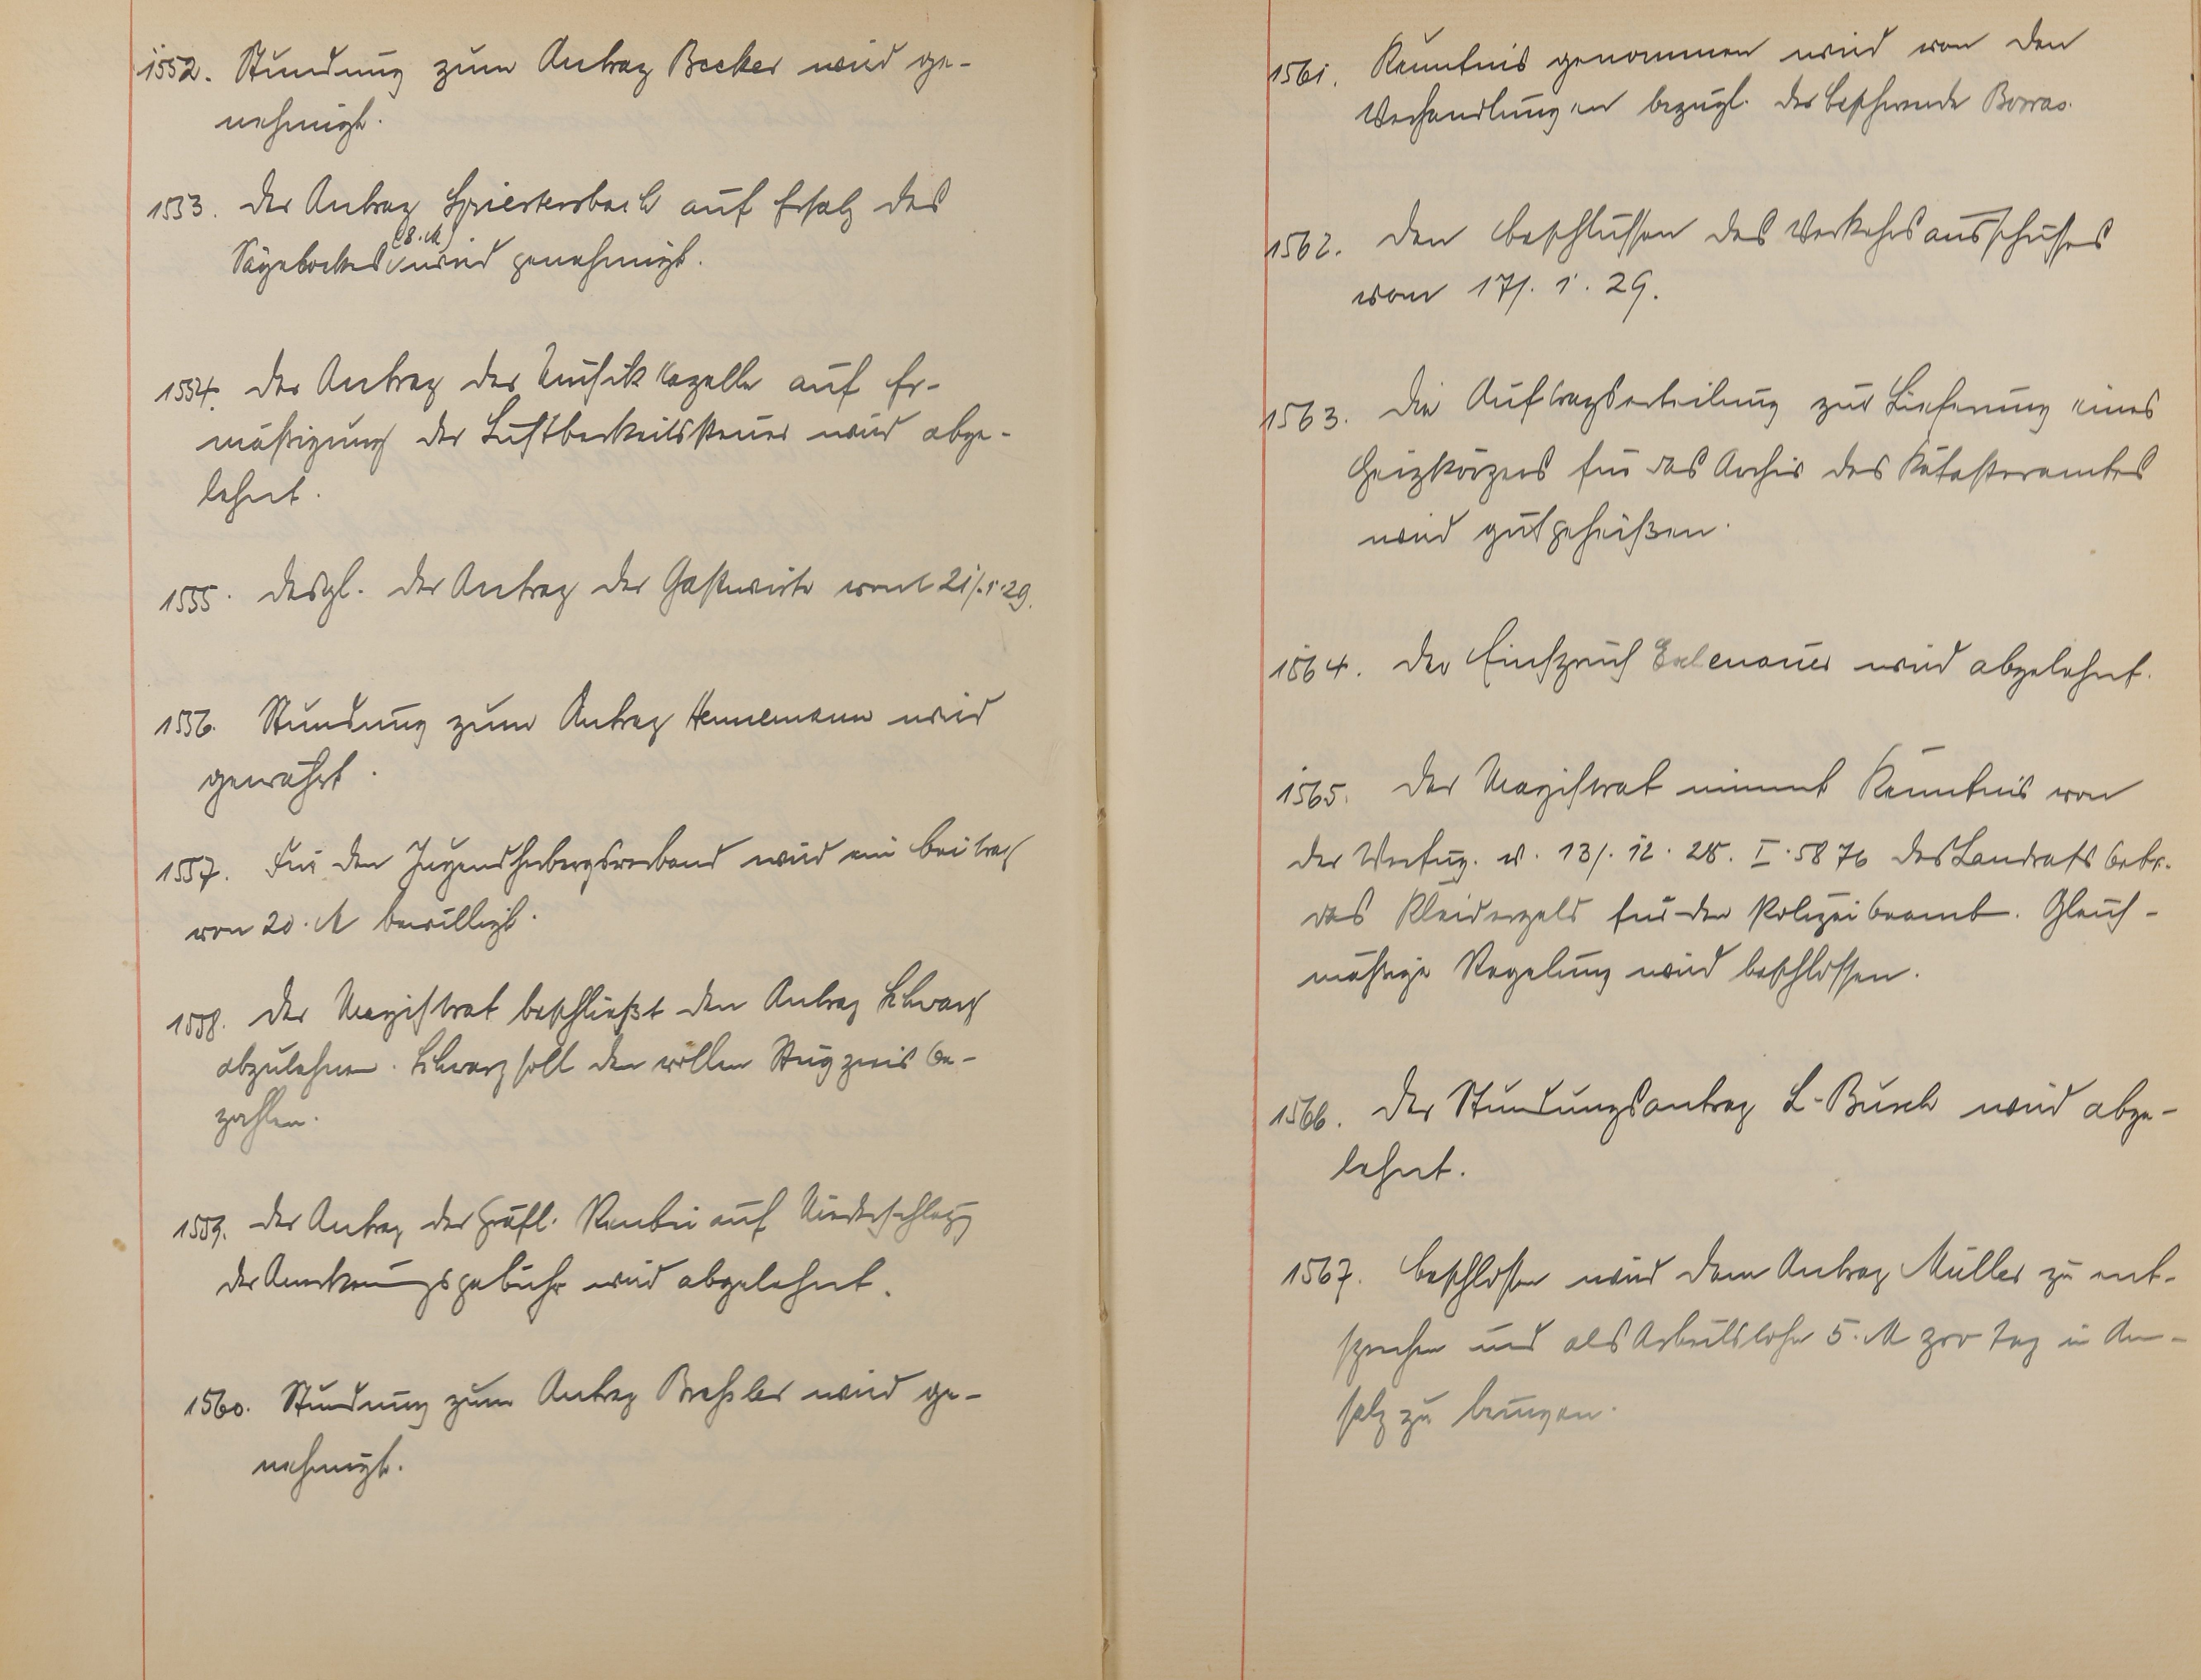 1552. Stundung zum Antrag Becker wird ge-
nehmigt.
1553. Der Antrag Spriestersbach auf Ersatz des
(8.M)
Sägebockes wird genehmigt.
1554. Der Antrag der Musikkapelle auf Er-
mäßigung der Lustbarkeitssteuer wird abge-
lehnt.
1555. Desgl. der Antrag der Gastwirte vom 21/.1.29.
1556. Stundung zum Antrag Hennemann wird
gewährt.
1557. Für den Jugendherbergsverband wird ein Beitrag
von 20.M bewilligt.
1558. Der Magistrat beschließt den Antrag Schwarz
abzulehnen. Schwarz soll den vollen Steigpreis be-
zahlen.
1559. Der Antrag der Gräfl. Rentei auf Niederschlagg
der Anerkennungsgebühr wird abgelehnt.
1560. Stundung zum Antrag Breßler wird ge-
nehmigt.
1561. Kenntnis genommen wird von den
Verhandlungen bezügl. der Beschwerde Borras.
1562. Den Beschlüssen des Verkehrsausschusses
vom 17/. 1. 29.
1563. Die Auftragserteilung zur Lieferung eines
Heizkörpers für das Archiv des Katasteramtes
wird gutgeheißen.
1564. Der Einspruch wird abgelehnt.
1565. Der Magistrat nimmt Kenntnis von
der Verfüg. v. 13/. 12. 28. I. 5876 des Landrats betr.
das Kleidergeld für den Polizeibeamt. Gleich-
mäßige Regelung wird beschlossen.
1566. Der Stundungsantrag L. Busch wird abge-
lehnt.
1567. Beschlossen wird dem Antrag Müller zu ent-
sprechen und als Arbeitslohn 5.M pro Tag in An-
satz zu bringen.